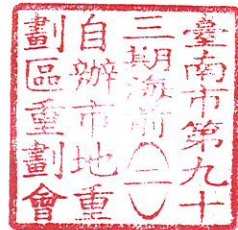 臺南市第九十
三期海前(一)
自辦市地重
劃區重劃會